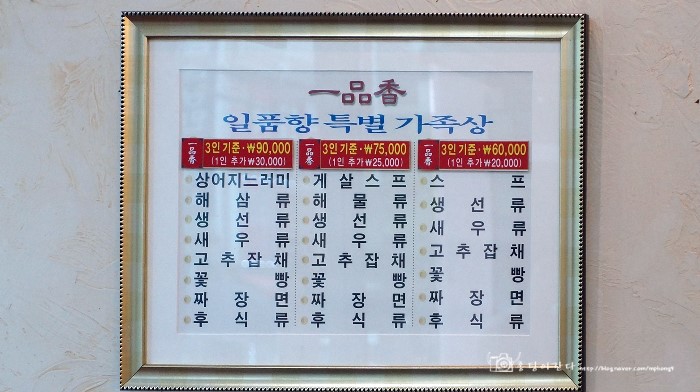 一品香
일품향 특별 가족상
一品香 3인 기준·₩90,000
(1인 추가 ₩30,000)
상어지느러미
해삼류
생선류
새우류
고추잡채
꽃빵
짜장면
후식류
一品香 3인 기준·₩75,000
(1인 추가 ₩25,000)
게살스프
해물류
생선류
새우류
고추잡채
꽃빵
짜장면
후식류
一品香 3인 기준·₩60,000
(1인 추가 ₩20,000)
스프
생선류
새우류
고추잡채
꽃빵
짜장면
후식류
http://blog.naver.com/mphong9